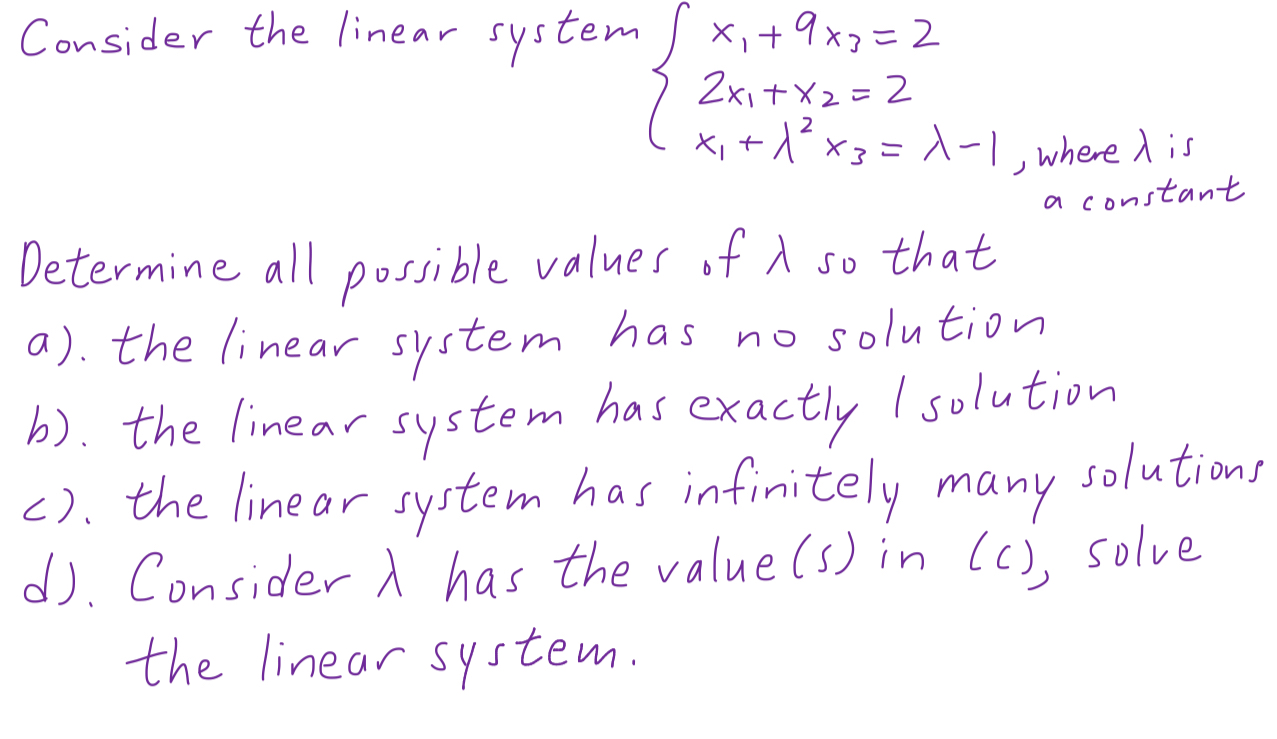 Consider the linear system { x₁ + 9x₃ = 2
2x₁ + x₂ = 2
x₁ + λ² x₃ = λ - 1, where λ is
a constant
Determine all possible values of λ so that
a). the linear system has no solution
b). the linear system has exactly 1 solution
c). the linear system has infinitely many solutions
d). Consider λ has the value(s) in (c), solve
the linear system.